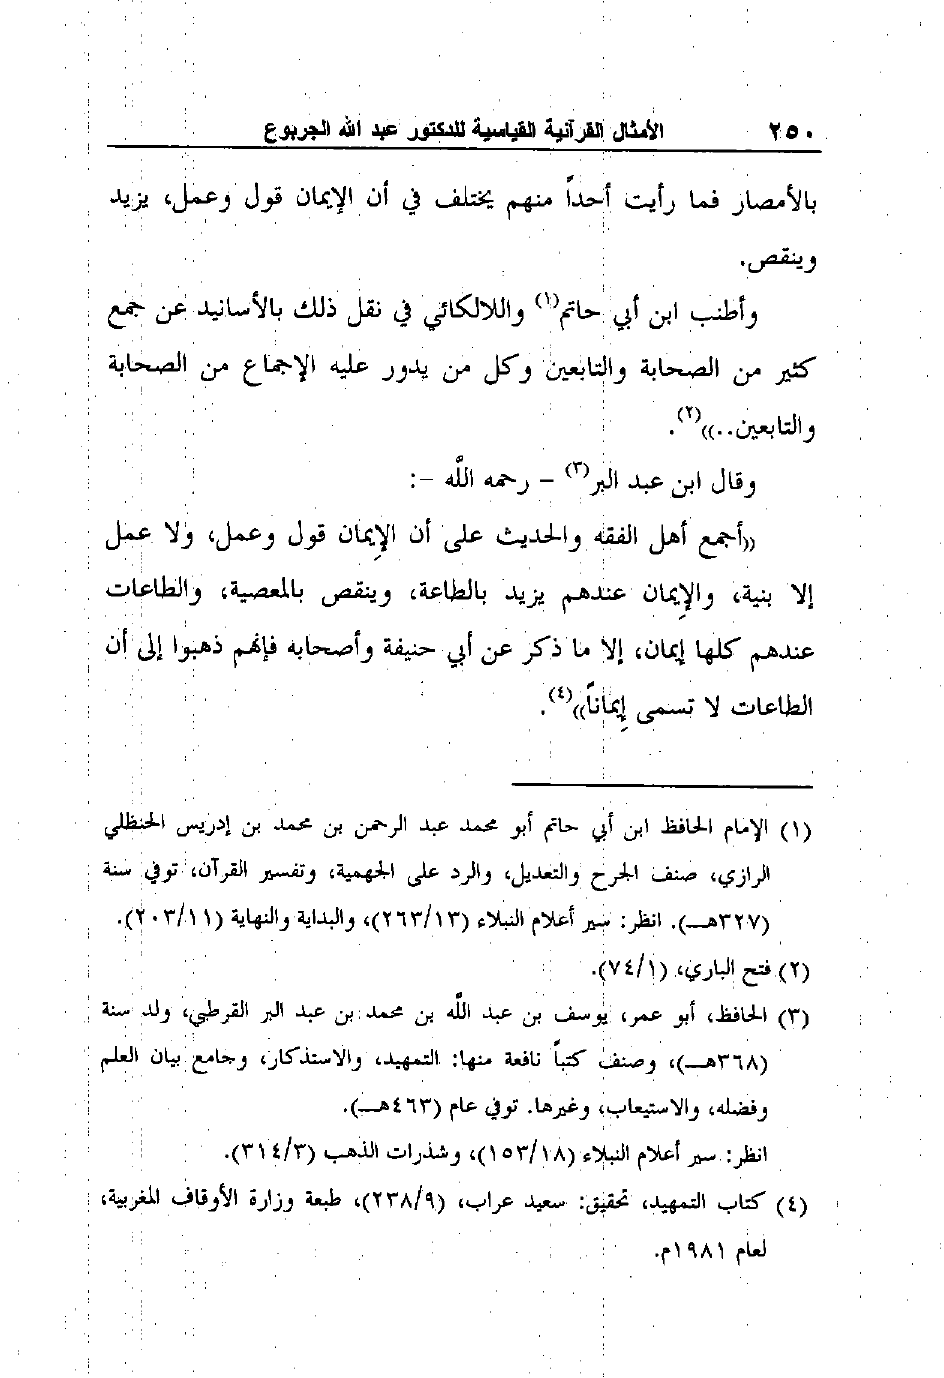 ٢٥٠ الأمثال القرآنية القياسية للدكتور عبد الله الجربوع
بالأمصار فما رأيت أحداً منهم يختلف في أن الإيمان قول وعمل، يزيد
وينقص.
وأطنب ابن أبي حاتم(١) واللالكائي في نقل ذلك بالأسانيد عن جمع
كثير من الصحابة والتابعين وكل من يدور عليه الإجماع من الصحابة
والتابعين..))(٢).
وقال ابن عبد البر(٣) – رحمه اللَّه –:
((أجمع أهل الفقه والحديث على أن الإِيمان قول وعمل، ولا عمل
إلا بنية، والإِيمان عندهم يزيد بالطاعة، وينقص بالمعصية، والطاعات
عندهم كلها إيمان، إلا ما ذكر عن أبي حنيفة وأصحابه فإنهم ذهبوا إلى أن
الطاعات لا تسمى إِيماناً))(٤).
(١) الإمام الحافظ ابن أبي حاتم أبو محمد عبد الرحمن بن محمد بن إدريس الحنظلي
الرازي، صنف الجرح والتعديل، والرد على الجهمية، وتفسير القرآن، توفي سنة
(٣٢٧هـ). انظر: سير أعلام النبلاء (٢٦٣/١٣)، والبداية والنهاية (٢٠٣/١١).
(٢) فتح الباري، (٧٤/١).
(٣) الحافظ، أبو عمر، يوسف بن عبد اللَّه بن محمد بن عبد البر القرطبي، ولد سنة
(٣٦٨هـ)، وصنف كتباً نافعة منها: التمهيد، والاستذكار، وجامع بيان العلم
وفضله، والاستيعاب، وغيرها. توفي عام (٤٦٣هـ).
انظر: سير أعلام النبلاء (١٥٣/١٨)، وشذرات الذهب (٣١٤/٣).
(٤) كتاب التمهيد، تحقيق: سعيد عراب، (٢٣٨/٩)، طبعة وزارة الأوقاف المغربية،
لعام ١٩٨١م.